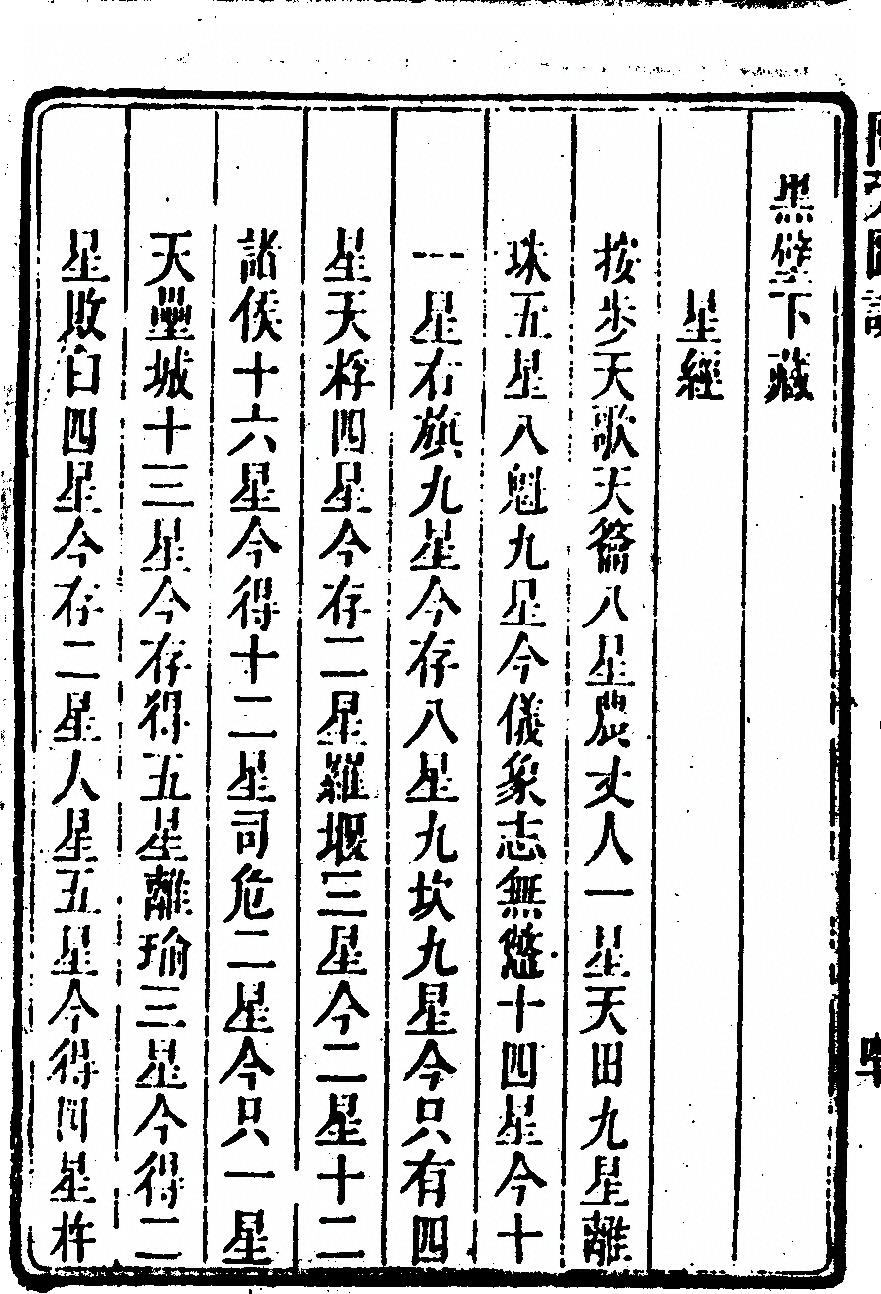 黑壁下藏
星經
按步天歌天籥八星農丈人一星天田九星離
珠五星八魁九星今儀象志無鼈十四星今十
一星右旗九星今存八星九坎九星今只有四
星天桴四星今存二星羅堰三星今二星十二
諸侯十六星今得十二星司危二星今只一星
天壘城十三星今存得五星離瑜三星今得二
星敗臼四星今存二星人星五星今得四星杵